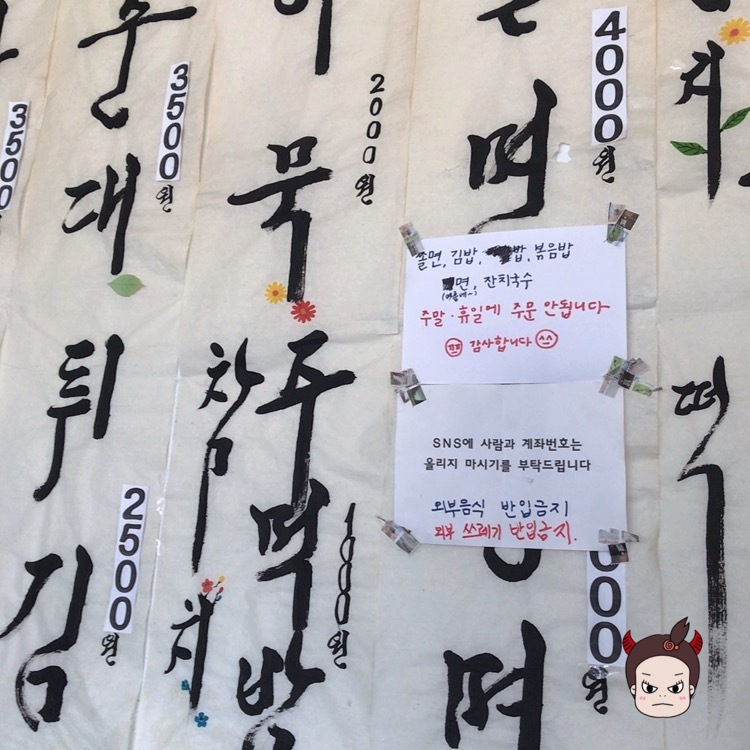 3500원
순대
3500원
튀김
2500원
묵
2000원
참치
주먹밥
1000원
면
4000원
쫄면, 김밥, 밥, 볶음밥
면, 잔치국수
주말·휴일에 주문 안됩니다
감사합니다 ^^
SNS에 사람과 계좌번호는
올리지 마시기를 부탁드립니다
외부음식 반입금지
외부 쓰레기 반입금지.
면
000원
치
떡